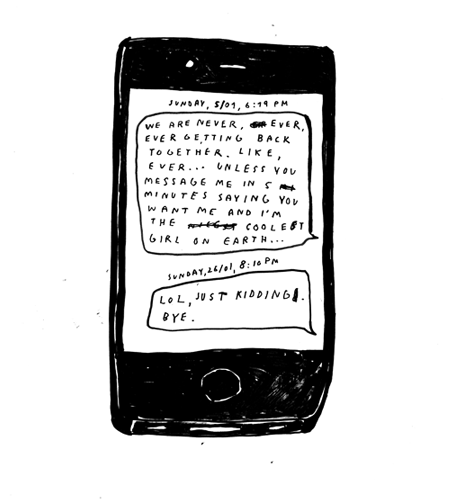 SUNDAY, 5/01, 6:19 PM
WE ARE NEVER, EVER,
EVER GETTING BACK
TOGETHER. LIKE,
EVER... UNLESS YOU
MESSAGE ME IN 5
MINUTES SAYING YOU
WANT ME AND I'M
THE COOLEST
GIRL ON EARTH...
SUNDAY, 26/01, 8:10 PM
LOL, JUST KIDDING.
BYE.